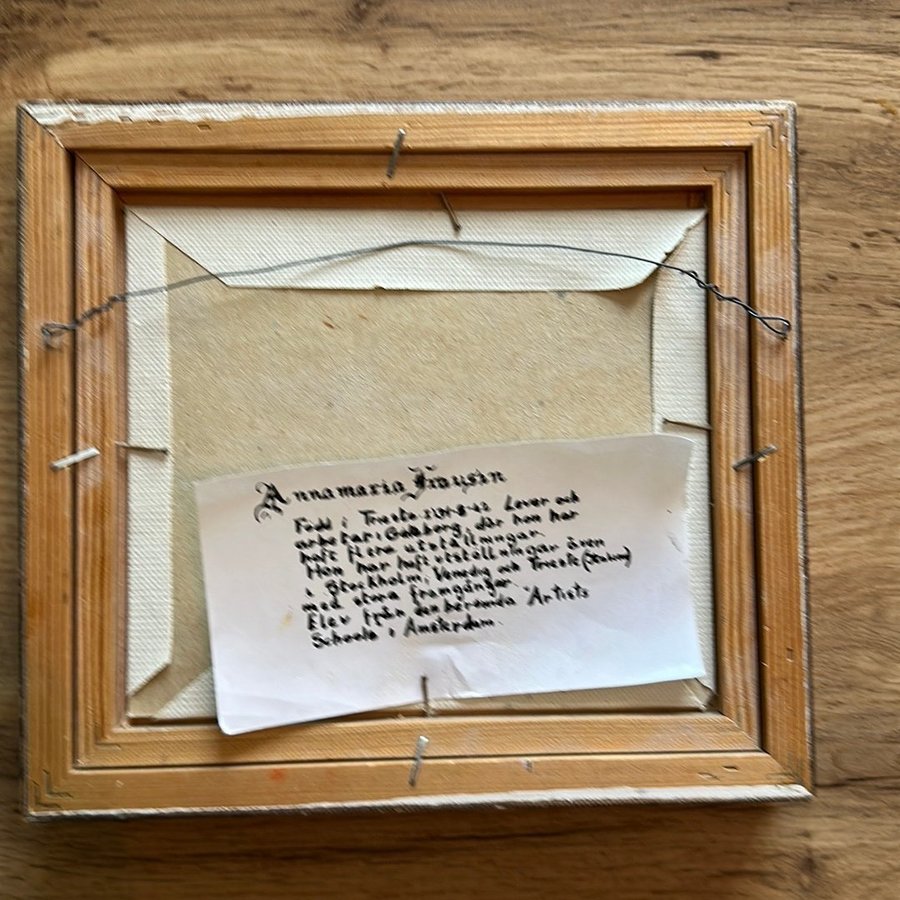 Annamaria
Född i Trieste Lever och
arbetar i Göteborg, där hon har
haft flera utställningar.
Hon har haft utställningar även
i Stockholm, Venedig och Trieste (Italien)
med stora framgångar.
Elev från den berömda "Artists
Schoole i Amsterdam.